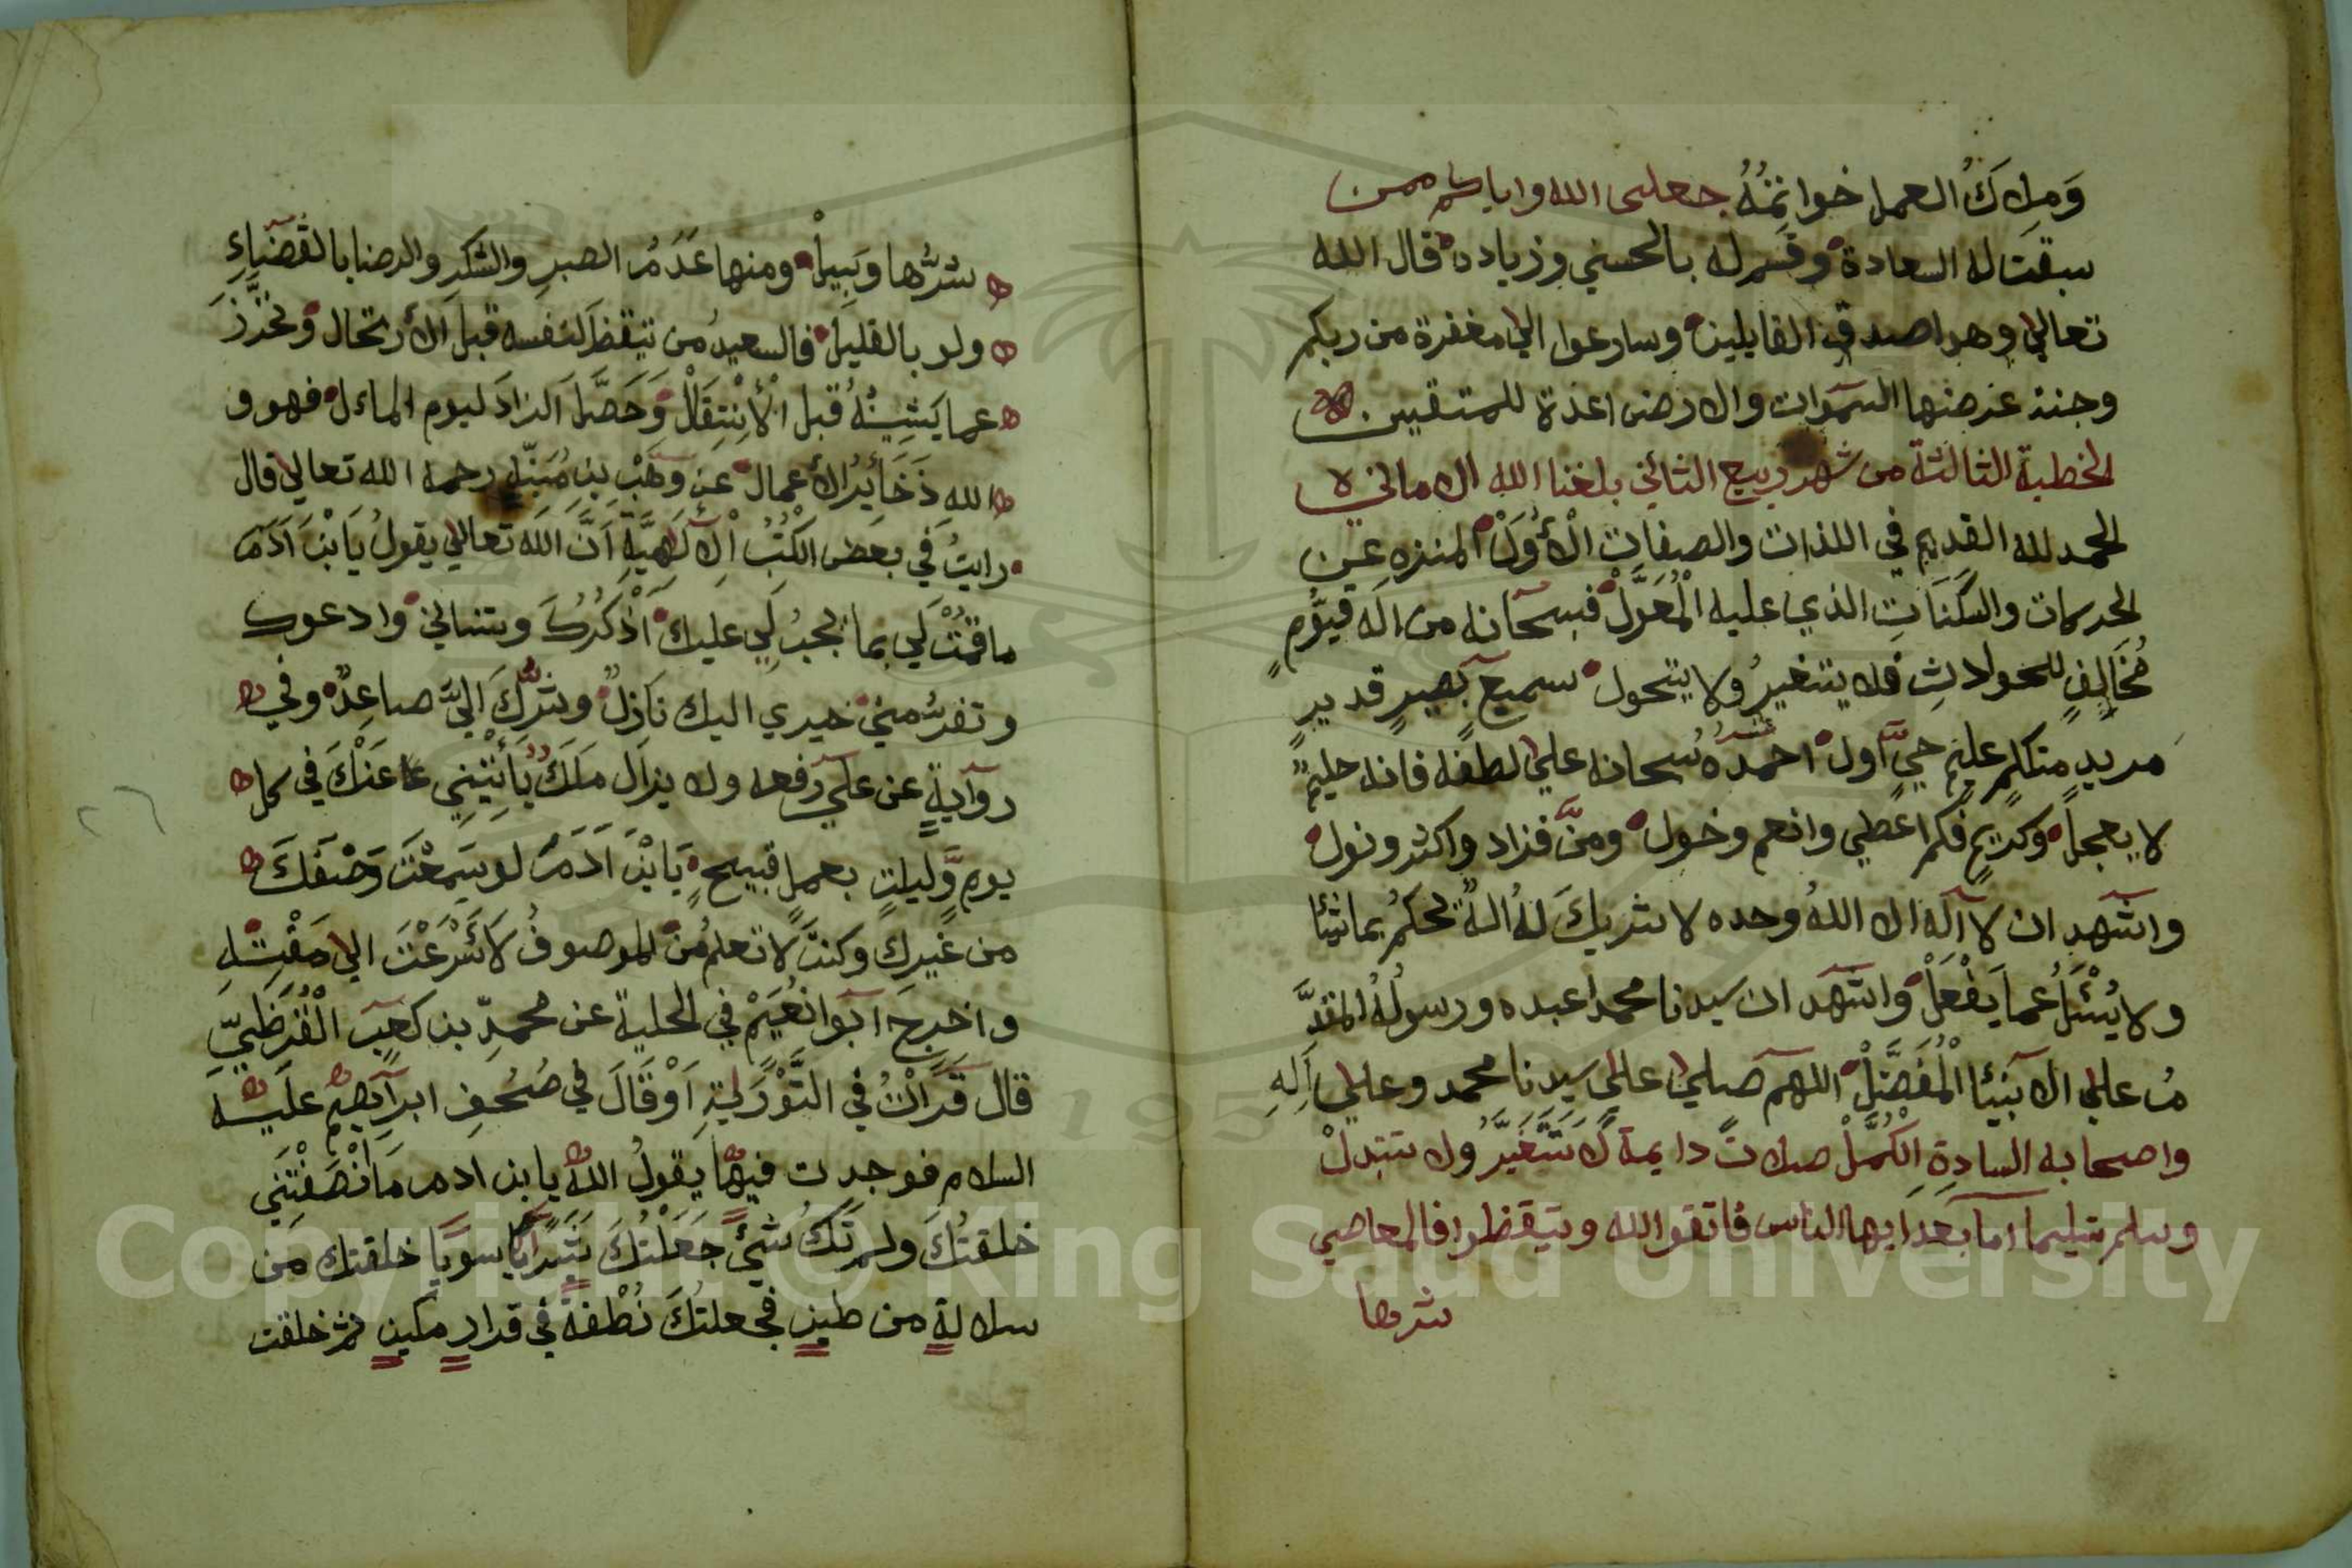 وَمِلاكُ العمل خواتِمُهُ جعلني الله واياكم ممن
سبقت له السعادة وقسم له بالحسني وزياده قال الله
تعالي وهو اصدق القايلين وسارعوا الي مغفرة من ربكم
وجنة عرضها السموات والارض اعدة للمتقين
الخطبة الثالثة من شهر ربيع الثاني بلغنا الله الاماني
الحمد لله القديم في اللذات والصفات الْأُوَلْ المنزه عن
الحركات والسكَنَاتِ الذي عليه الْمُعَوَّلْ فسبحانه من اله قيُّومٍ
مُخَالِفٍ للحوادثِ فلا يتغيرُ ولا يتحول سميعٍ بصيرٍ قديرٍ
مريدٍ متكلمٍ عليمٍ حيٍّ اول احمدُه سُبحانه علي لطفه فانه حليمٌ
لا يعجل وكريمٍ فكم اعطي وانعم وخول ومنَّ فزاد واكثر ونول
واشهد ان لا اله الا اللهُ وحده لا شريكَ لهُ الهٌ يحكمُ بماشئا
ولا يُسْئَلُ عما يَفْعَلْ واشهد ان سيدنا محمدا عبده ورسولُهُ المقدَّ
مُ علي الانبيئا الْمُفَضَّلْ اللهم صلي علي سيدنا محمد وعلي اَلِهِ
واصحابه السادةِ الكُمَّلْ صلاتً دايمة لاَ تتَغَيَّرُ ولا تتبدلْ
وسلم تسليما اما بعد ايها الناس فاتقوا الله وتيقظوا فالمعاصي
شرها
شرُّها وَبِيلْ ومنها عَدَمُ الصبرِ والشكرِ والرضا بالقضاءِ
ولو بالقليل فالسعيدُ من تيقظ لنفسه قبل الأرتحال وتحرَّزَ
عما يَشِيْنُهُ قبل الْأِنْتِقَالْ وَحَصَّلَ الزادَ ليوم الماءل فهو و
الله ذَخَائِرُ الأعمال عن وَهَبِ بنِ مُنَبِّهٍ رحمه الله تعالي قال
رايتُ في بعض الكُتُبِ الْاِلَهِيَّةِ اَنَّ اللهَ تعالي يقولُ يَابْنَ اَدَمَ
ماقمْتَ لي بما يجبُ لي عليك اَذْكُرُكَ وتنساني وادعوك
وتفرُّ مني خيري اليك نَازِلٌ وشرُّكَ اليَّ صاعِدٌ وفي
روايةٍ عن علي رفعه ولا يزال مَلَكٌ يَأْتِيْنِي عَنْكَ في كل
يومٍ وَّليلةٍ بعملٍ قبيحٍ يَابْنَ اَدَمَ لو سَمِعْتَ وَصْفَكَ
من غيرِكِ وكنتَ لا تعلمُ منْ الموصوفُ لَاَسْرَعْتَ الي مَقْتِهِ
واخرجَ ابوا نُعَيْمٍ في الحلية عن محمدِ بن كعبٍ الْقُرَظِيِّ
قال قَرَاْتُ في التَّوْرَيةِ اَوْ قَالَ في صُحُفِ ابراهيم عليه
السلام فوجدت فيها يقولُ اللهُ يا بن ادم مَا اَنْصَفْتَنِي
خلقتُكَ ولم تَكُ شيئً جَعَلْتُكَ بَشَرًا سويًا خلقتك من
سلالةٍ من طينٍ فجعلتُكَ نُطْفةً في قرارٍ مكينٍ ثم خلقت